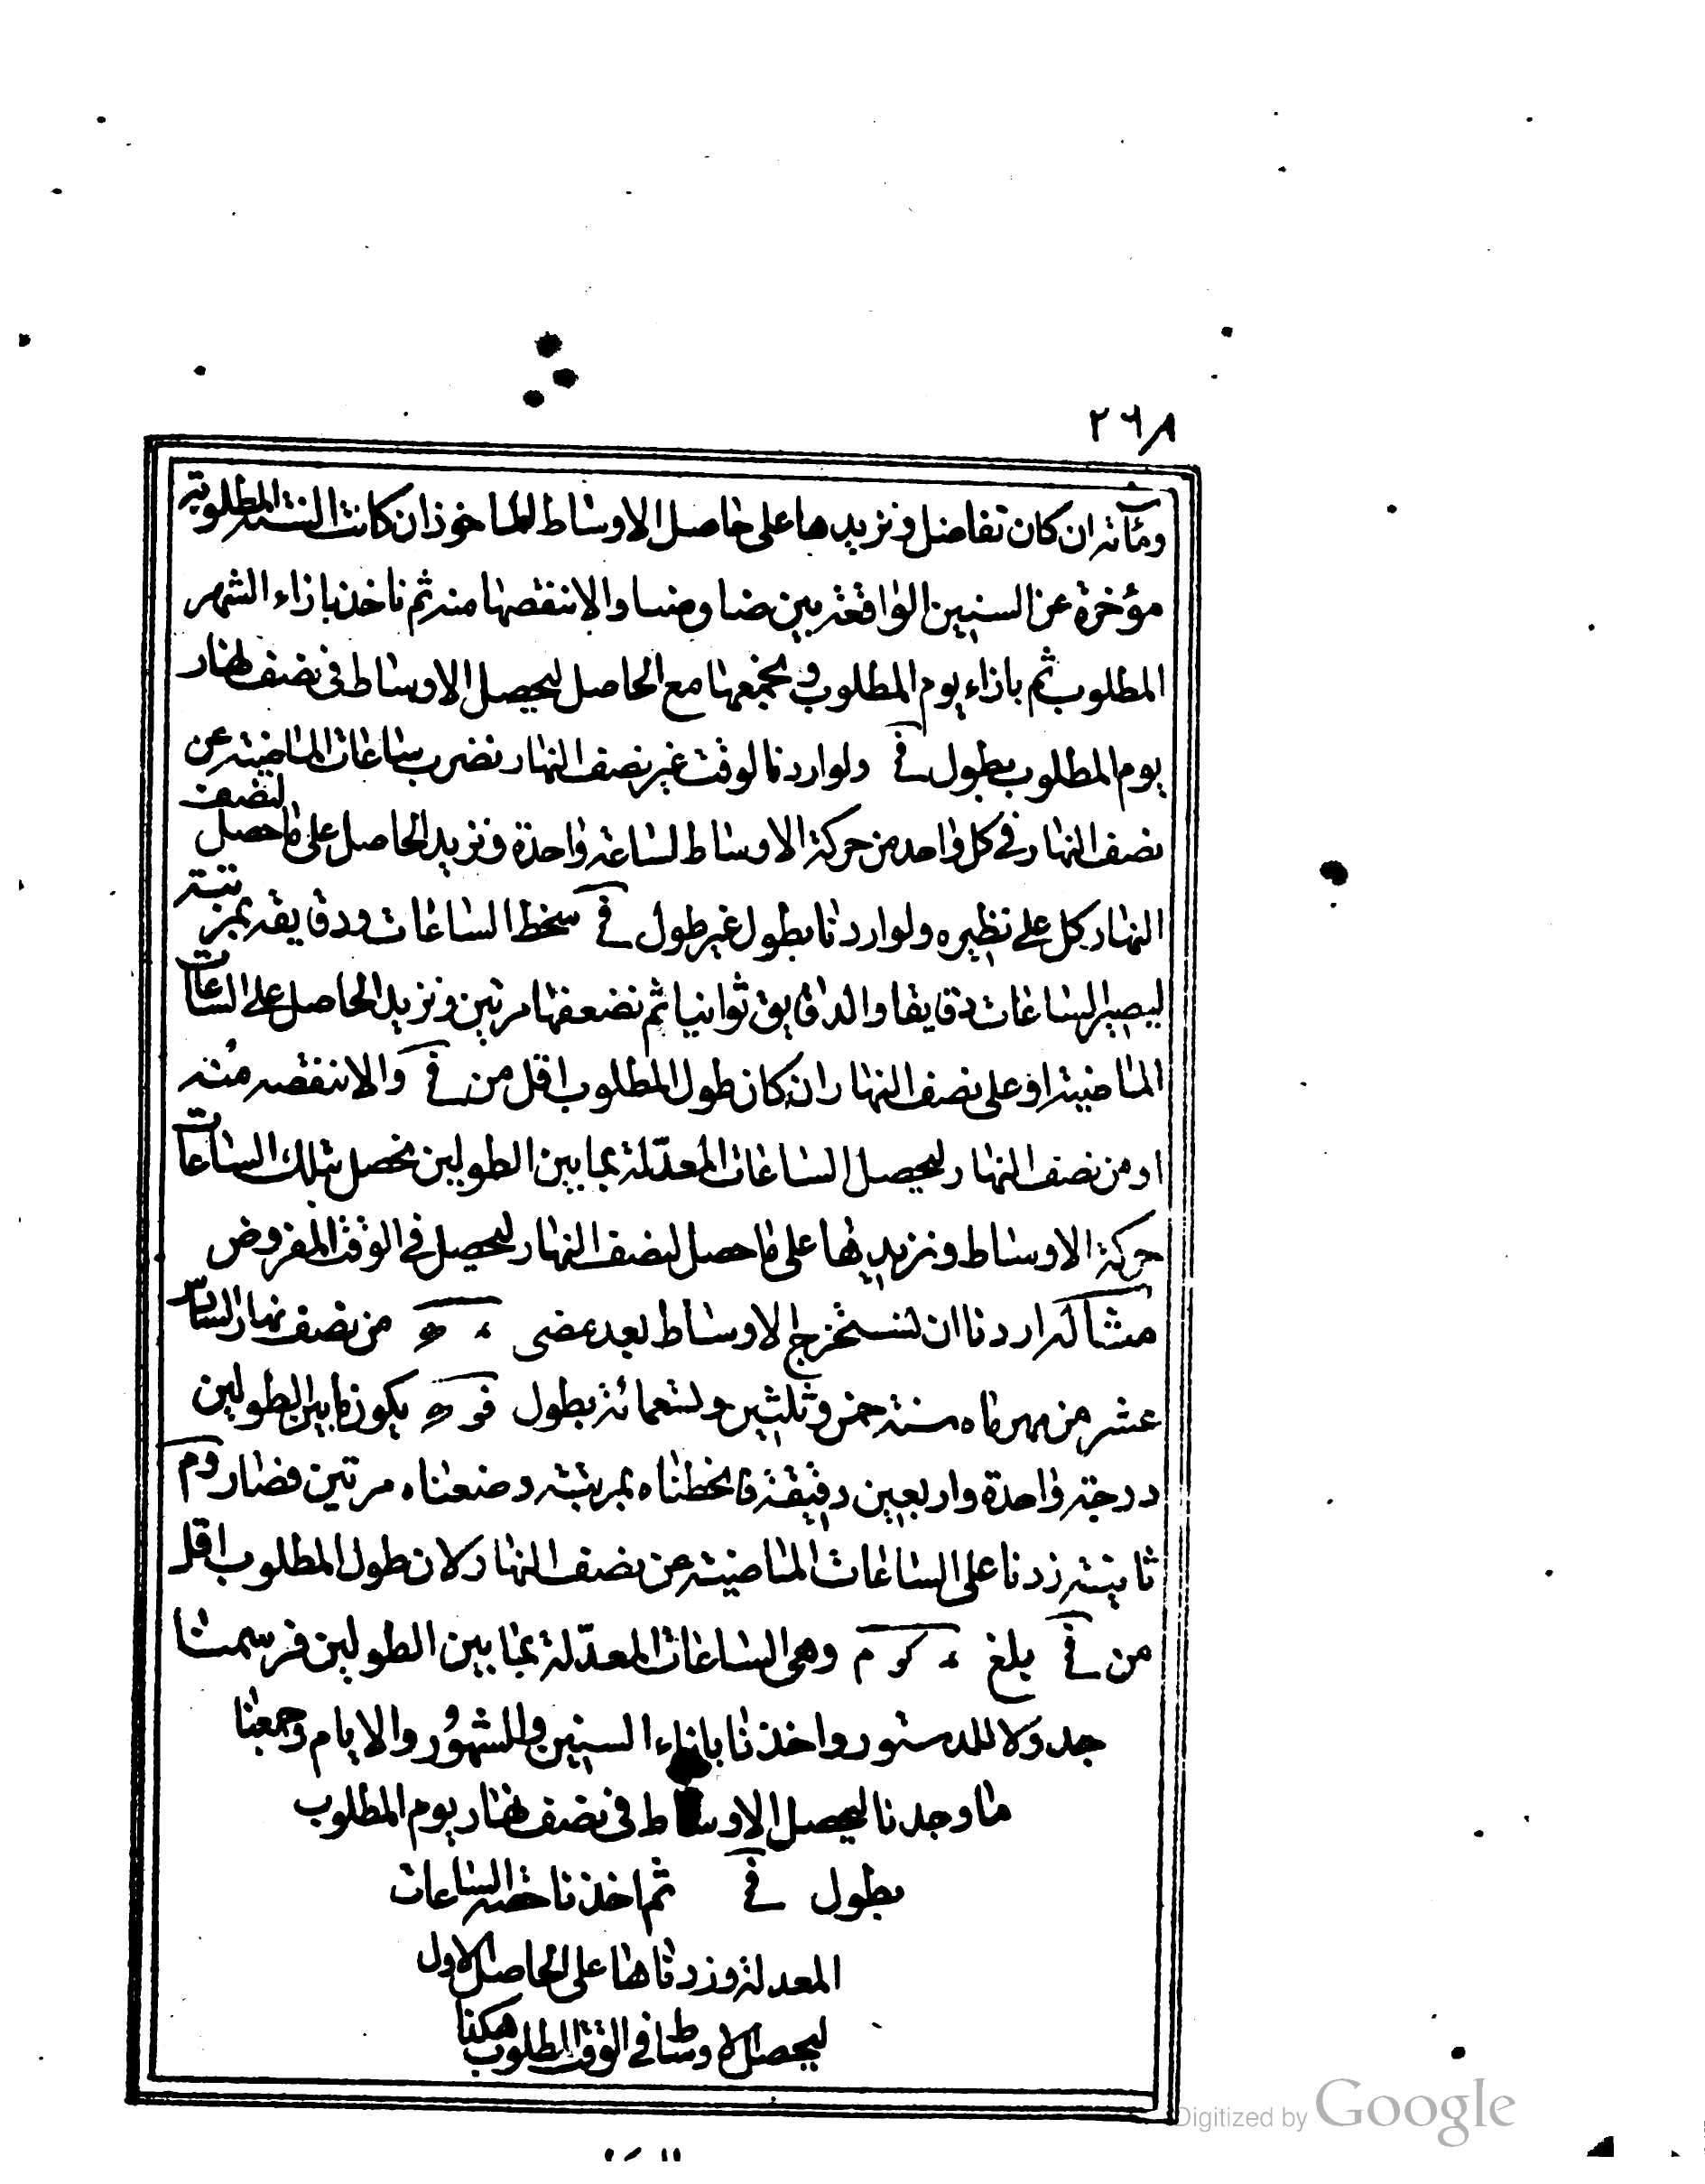 ٢٦٨
ومأته ان كان تفاضل ونزيدها على حاصل الاوساط المأخوذ ان كانت السنة المطلوبة
مؤخرة عن السنين الواقعة بين ضا وضسا والا ننقصها منه ثم ناخذ بازاء الشهر
المطلوب ثم بازاء يوم المطلوب ونجمعها مع الحاصل ليحصل الاوساط فى نصف نهار
يوم المطلوب بطول فے ولو اردنا لوقت غير نصف النهار نضرب ساعات الماضية عن
نصف النهار فى كل واحد من حركة الاوساط لساعة واحدة ونزيد الحاصل على ما حصل لنصف
النهار كل على نظيره ولو اردنا بطول غير طول فے نحط الساعات ودقايقه بمرتبة
ليصير الساعات دقايقا والدقايق ثوانيا ثم نضعفها مرتين ونزيد الحاصل على الساعات
الماضية او على نصف النهار ان كان طول المطلوب اقل من فے والا ننقصه منه
او من نصف النهار ليحصل الساعات المعدّلة بما بين الطولين نحصل بتلك الساعات
حركة الاوساط ونزيدها على ما حصل لنصف النهار ليحصل فى الوقت المفروض
مثاله اردنا ان نستخرج الاوساط بعد مضى ء ه من نصف نهار السادس
عشر من مهرماه سنة خمس وثلثين وتسعمائة بطول فو ه يكون ما بين الطولين
درجة واحدة واربعين دقيقة فانحطناه بمرتبة وضعناه مرتين فصار و م
ثانية زدنا على الساعات الماضية عن نصف النهار لان طول المطلوب اقل
من فے بلغ ء كو م وهى الساعات المعدّلة بما بين الطولين فرسمنا
جدولا للدستور واخذنا بازاء السنين والشهور والايام وجمعنا
ما وجدنا ليحصل الاوساط فى نصف نهار يوم المطلوب
بطول فے ثم اخذنا حصة الساعات
المعدلة وزدناها على الحاصل الاول
ليحصل الاوساط فى الوقت المطلوب هكذا
Digitized by Google